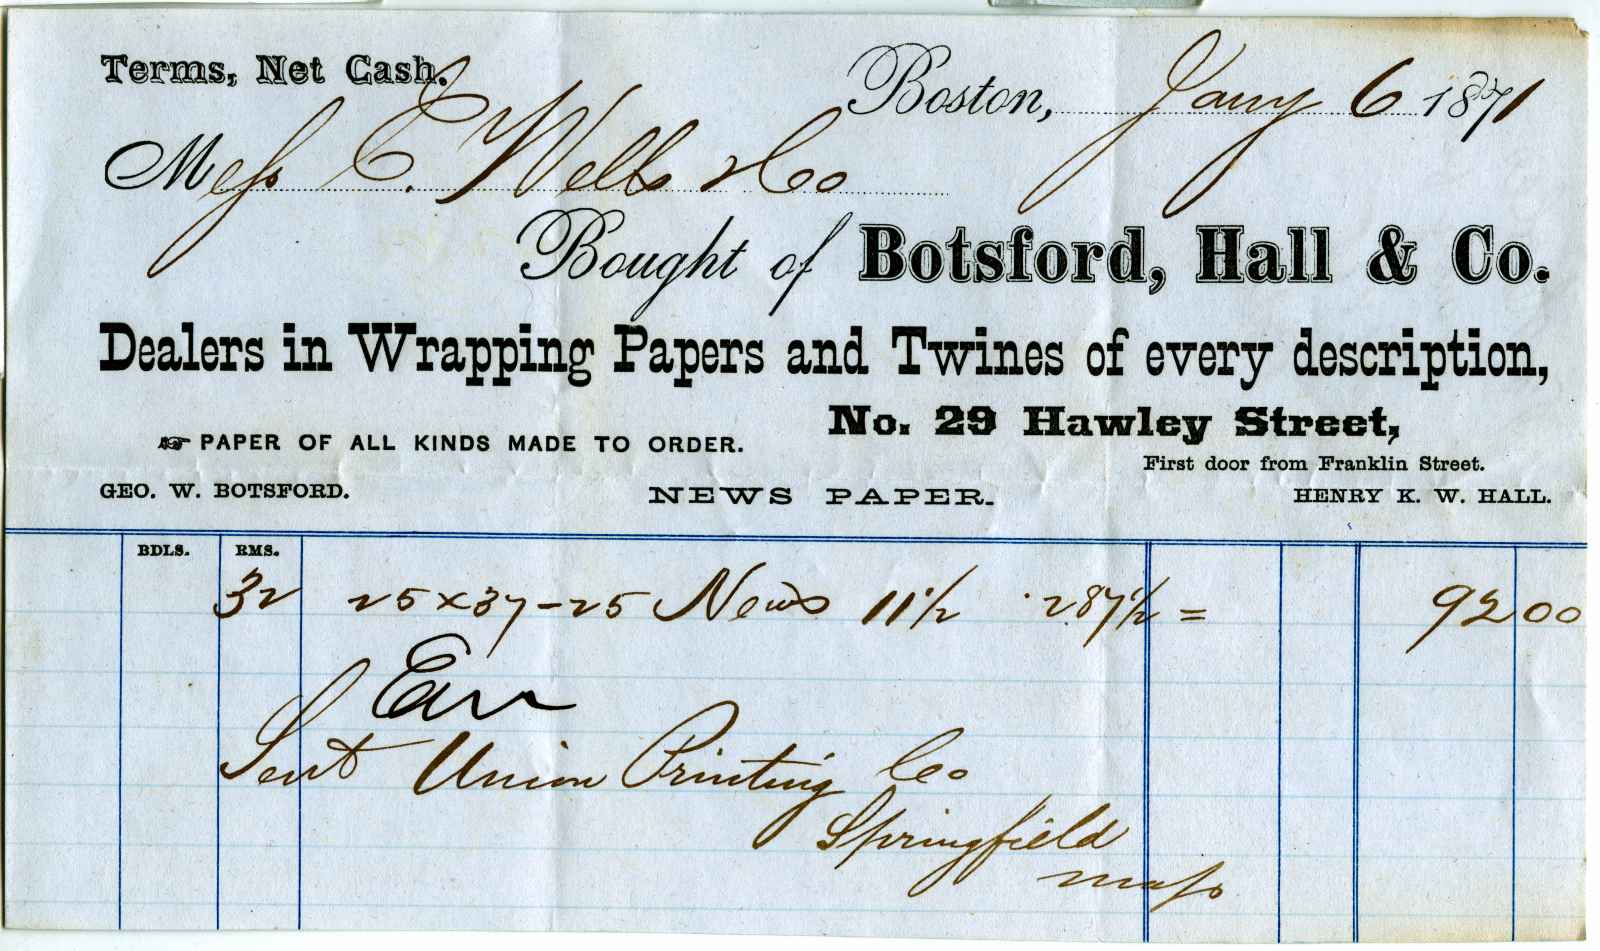 Terms, Net Cash.
Boston, Jany 6 1871
Mess C. Wells & Co
Bought of Botsford, Hall & Co.
Dealers in Wrapping Papers and Twines of every description,
No. 29 Hawley Street,
☞ PAPER OF ALL KINDS MADE TO ORDER.
First door from Franklin Street.
GEO. W. BOTSFORD. NEWS PAPER. HENRY K. W. HALL.
BDLS. RMS.
32 25x37-25 News 11½ 2.87½ = 92 00
Sent Union Printing Co
Springfield
Mass